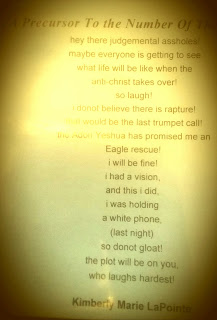 A Precursor To the Number Of
hey there judgemental assholes!
maybe everyone is getting to see
what life will be like when the
anti christ takes over!
so laugh!
i donot believe there is rapture!
would be the last trumpet call!
the Adon Yeshua has promised me an
Eagle rescue!
i will be fine!
i had a vision,
and this i did,
i was holding
a white phone,
(last night)
so donot gloat!
the plot will be on you,
who laughs hardest!
Kimberly Marie LaPointe